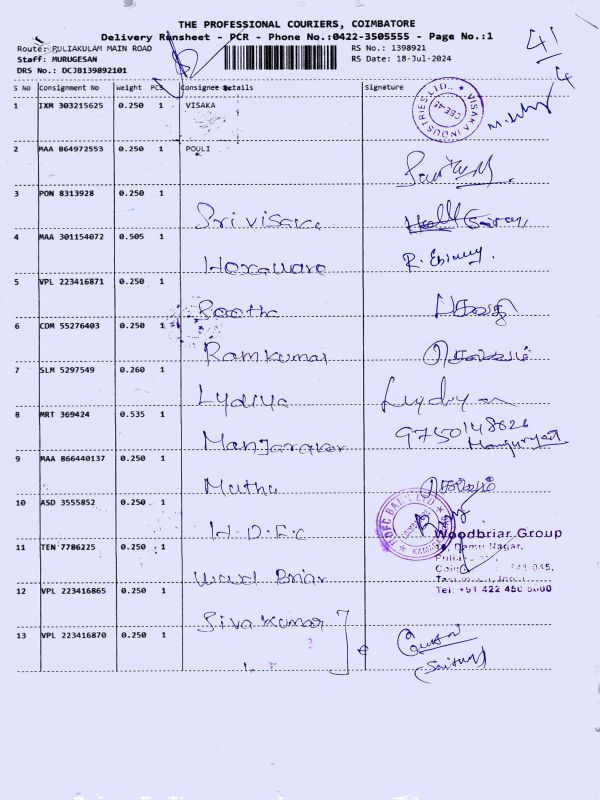 THE PROFESSIONAL COURIERS, COIMBATORE
Delivery Runsheet - PCR - Phone No.:0422-3505555 - Page No.:1
Route: PULIAKULAM MAIN ROAD
RS No.: 1398921
Staff: MURUGESAN
RS Date: 18-Jul-2024
DRS No.: DCJB139892101
41/4
S No Consignment No Weight PCS Consignee Details Signature
1 IXM 303215625 0.250 1 VISAKA
VISAKA INDUSTRIES LTD.
2 MAA 864972553 0.250 1 POULI
3 PON 8313928 0.250 1
Sri visaka
4 MAA 301154072 0.505 1
Hexaware R. Ebinny.
5 VPL 223416871 0.250 1
Bootha
6 CDM 55276403 0.250 1
Ramkumar
7 SLM 5297549 0.260 1
Lydiya
8 MRT 369424 0.535 1
9750148626
9 MAA 866440137 0.250 1
Mutha
10 ASD 3555852 0.250 1
HDFC BANK LTD
H.D.F.C
Woodbriar Group
11 TEN 7786225 0.250 1
Wood Briar
Tel: +91 422 450 5000
12 VPL 223416865 0.250 1
Siva Kumar
13 VPL 223416870 0.250 1